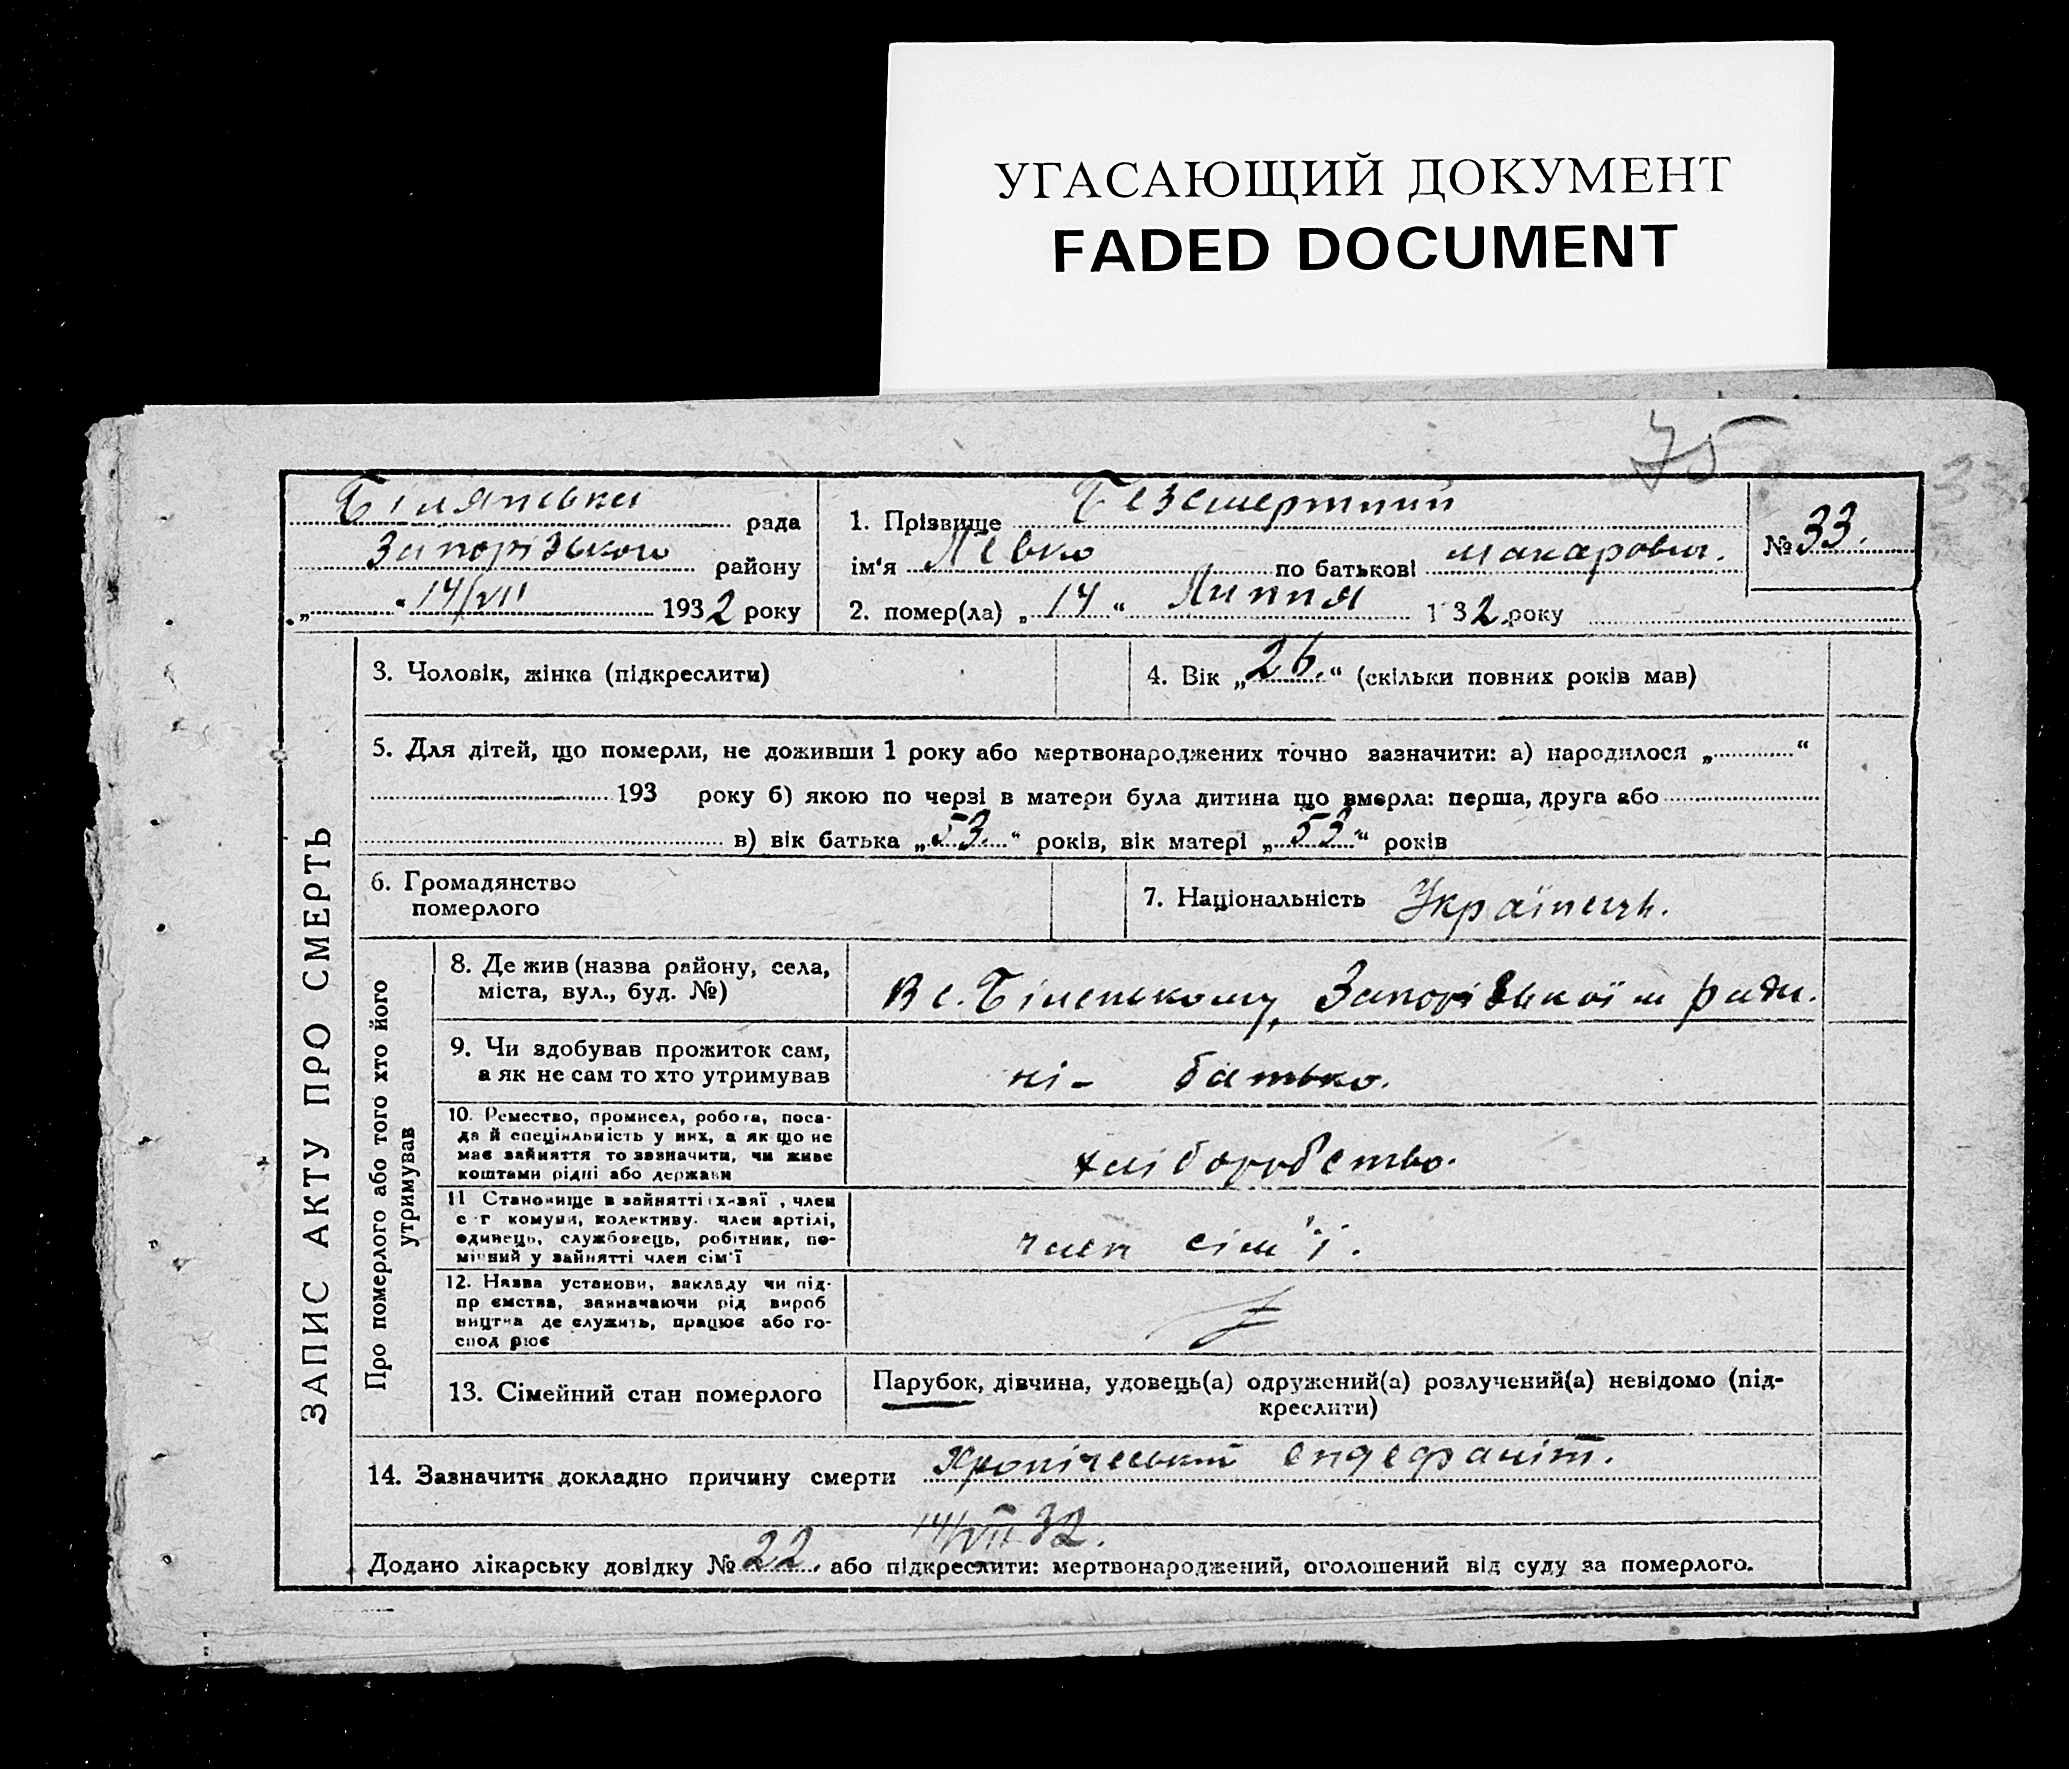 УГАСАЮЩИЙ ДОКУМЕНТ
FADED DOCUMENT
75
33
рада
Запорізького району
„ “ 14/VII 1932 року
1. Прізвище Безсмертний
ім‘я Левко по батькові Макарович.
2. помер(ла) „14“ Липня 1 32 року
№ 33.
ЗАПИС АКТУ ПРО СМЕРТЬ
3. Чоловік, жінка (підкреслити)
4. Вік „26.“ (скільки повних років мав)
5. Для дітей, що померли, не доживши 1 року або мертвонароджених точно зазначити: а) народилося „ “
193 року б) якою по черзі в матери була дитина що вмерла: перша, друга або
в) вік батька „53.“ років, вік матері „52“ років
6. Громадянство
померлого
7. Національність Українець.
Про померлого або того хто його
утримував
8. Де жив (назва району, села,
міста, вул., буд. №)
В с. Біленькому, Запорізької м ради.
9. Чи здобував прожиток сам,
а як не сам то хто утримував
ні - батько.
10. Ремество, промисел, робота, поса-
да й спеціяльність у них, а як що не
має зайняття то зазначити, чи живе
коштами рідні або держави
хліборобство.
11 Становище в зайнятті х-зяї , член
с г комуни, колективу. член артілі,
одинець, службовець, робітник, по-
мічний у зайнятті член сім'ї
член сім'ї.
12. Назва установи, закладу чи під-
пр ємства, зазначаючи рід вироб
ництва де служить, працює або го-
спод рює
13. Сімейний стан померлого
Парубок, дівчина, удовець(а) одружений(а) розлучений(а) невідомо (під-
креслити)
14. Зазначити докладно причину смерти Хронічеський
14/VII 32.
Додано лікарську довідку № 22. або підкреслити: мертвонароджений, оголошений від суду за померлого.